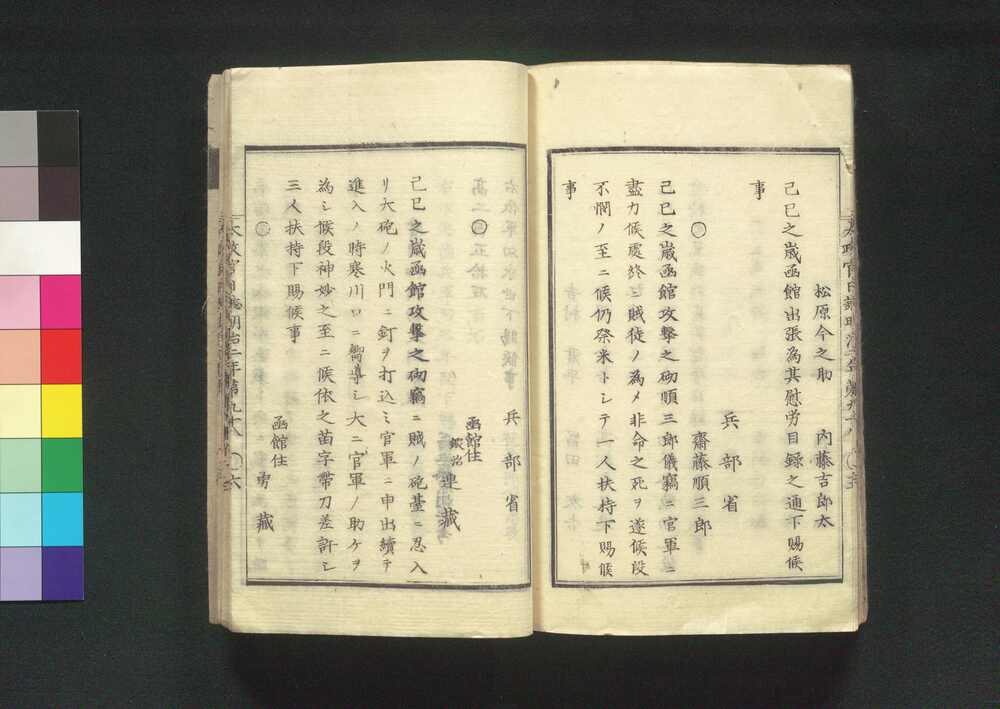 松原今之助　内藤吉郎太
己巳之歳函館出張為其慰労目録之通下賜候
事
兵部省
○
齋藤順三郎
己巳之歳函館攻撃之砌順三郎儀竊ニ官軍ニ
盡力候處終ニ賊徒ノ為メ非命之死ヲ遂候段
不憫ノ至ニ候仍祭米トシテ一人扶持下賜候
事
兵部省
○
函館住
鍛冶 連藏
己巳之歳函館攻撃之砌竊ニ賊ノ砲臺ニ忍入
リ大砲ノ火門ニ釘ヲ打込ミ官軍ニ申出續テ
進入ノ時寒川口ニ嚮導シ大ニ官軍ノ助ケヲ
為シ候段神妙之至ニ候依之苗字帶刀差許シ
三人扶持下賜候事
○
函館住 勇藏
太政官日誌明治二年第九十八
六